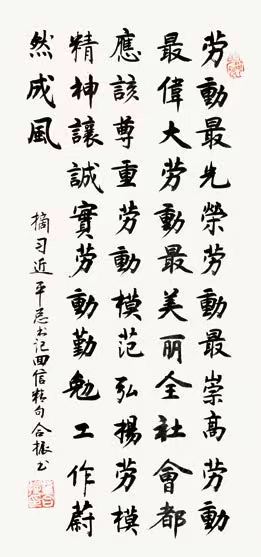 劳動最光榮劳動最崇高劳動
最偉大劳動最美丽全社會都
應該尊重劳動模范弘揚劳模
精神讓誠實劳動勤勉工作蔚
然成風
摘习近平总书记回信精句合振书